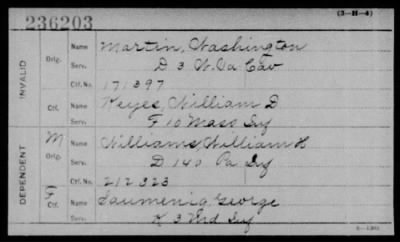 (3-H-4)
236203
INVALID
Orig.
Name Martin, Washington
Serv. D 3 W. Va Cav
Ctf. No. 171397
Ctf.
Name Keyes, William D
Serv. F 10 Mass Inf
DEPENDENT
M
Orig.
Name Williams, William H
Serv. D. 140 Pa Inf
Ctf. No. 212323
Ctf.
Name Saumenig George
Serv. K 3 Md Inf